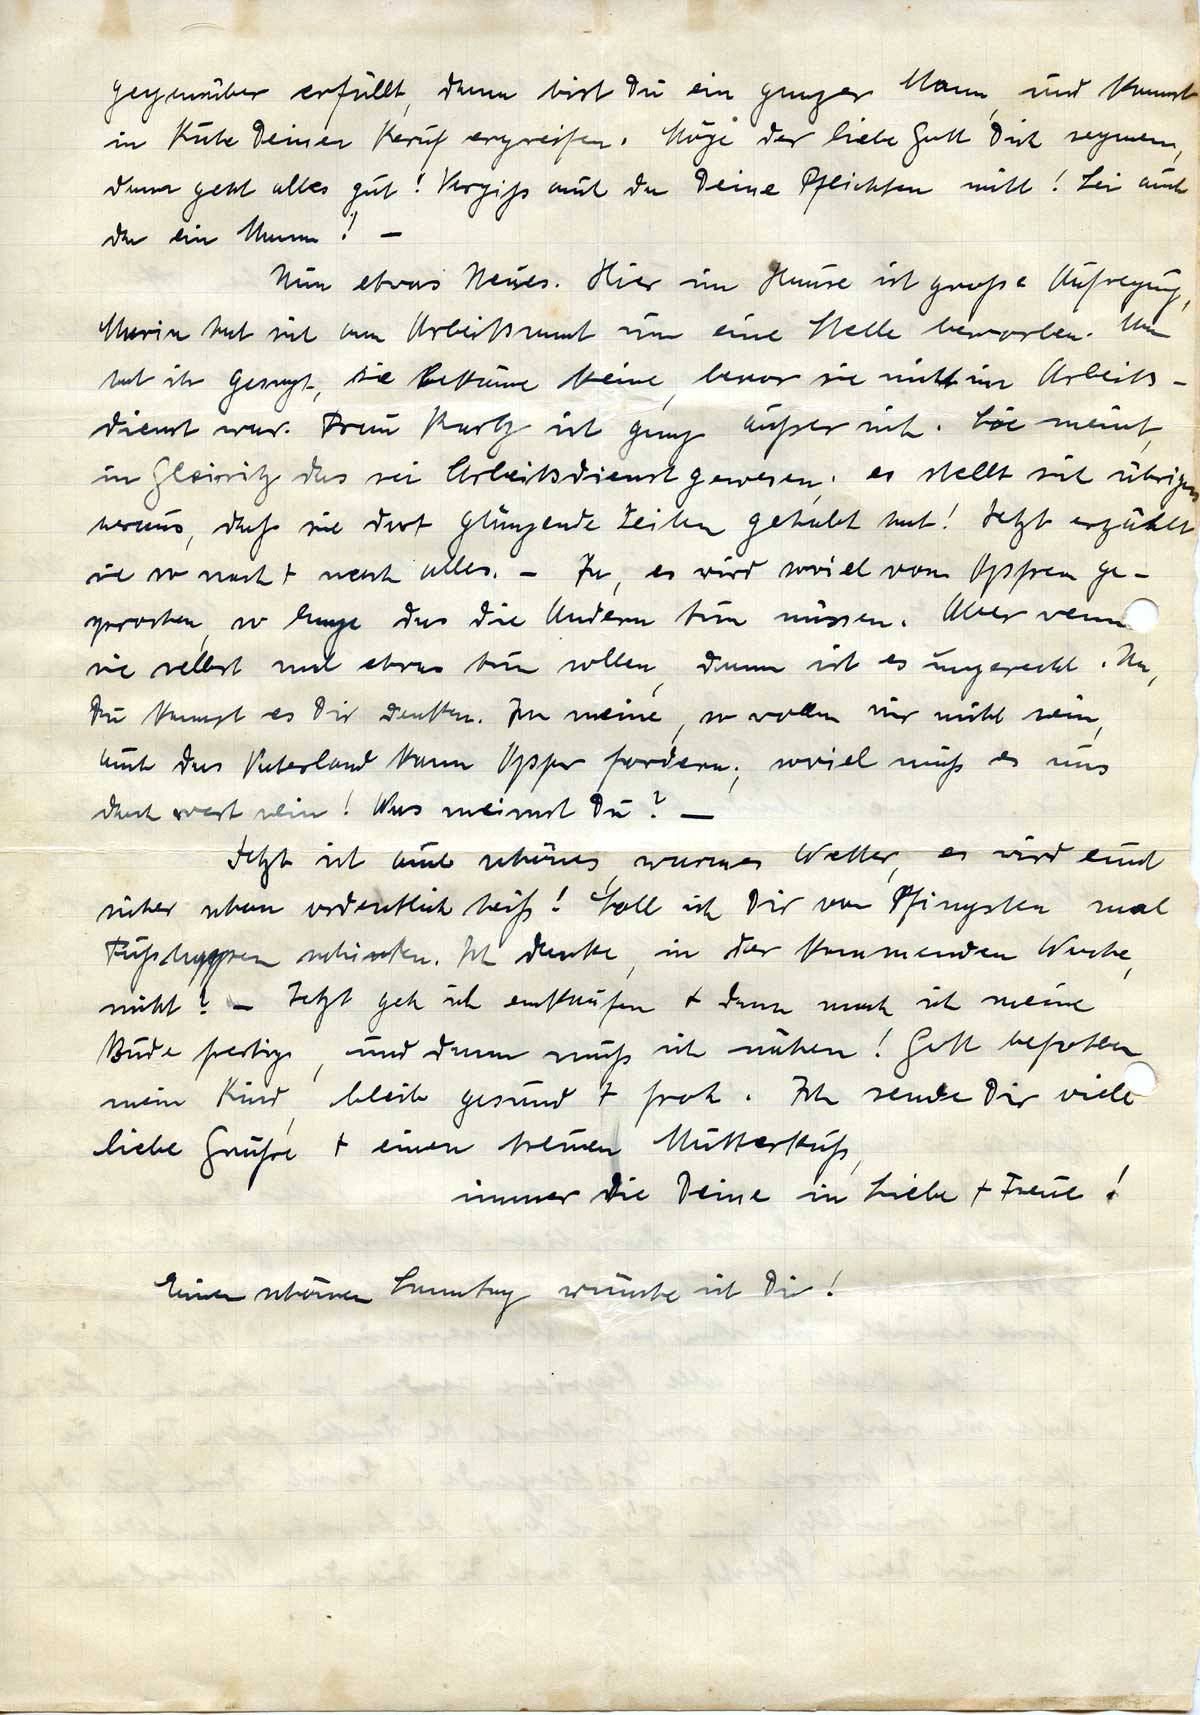 gegenüber erfüllt, dann bist Du ein ganzer Mann, und kannst
in Ruhe Deinen Beruf ergreifen. Möge der liebe Gott Dich segnen,
dann geht alles gut! Vergiß auch da Deine Pflichten nicht! Sei auch
da ein Mann! —
Nun etwas Neues. Hier im Hause ist große Aufregung,
Maria hat sich am Arbeitsamt um eine Stelle beworben. Man
hat ihr gesagt, sie bekäme keine, bevor sie nicht im Arbeits-
dienst war. Frau ist ganz außer sich. Sie meint,
in Gleiwitz das sei Arbeitsdienst gewesen; es stellt sich übrigens
heraus, daß sie dort glänzende Zeiten gehabt hat! Jetzt erzählt
sie so nach + nach alles. – Ja, es wird soviel vom Opfern ge-
sprochen, so lange das die Andern tun müssen. Aber wenn
sie selbst mal etwas tun sollen, dann ist es ungerecht. Na,
Du kannst es Dir denken. Ich meine, so wollen wir nicht sein,
auch das Vaterland kann Opfer fordern; soviel muß es uns
doch wert sein! Was meinst Du? —
Jetzt ist auch schönes, warmes Wetter, es wird euch
sicher schon ordentlich heiß! Soll ich Dir vor Pfingsten mal
Fußlappen schicken. Ich denke, in der kommenden Woche,
nicht? – Jetzt geh ich einkaufen + dann mach ich meine
Bude fertig, und dann muß ich nähen! Gott befohlen
mein Kind, bleib gesund + froh. Ich sende Dir viele
liebe Grüße + einen treuen Mutterkuß,
immer die Deine in Liebe + Treue!
Einen schönen Sonntag wünsche ich Dir!